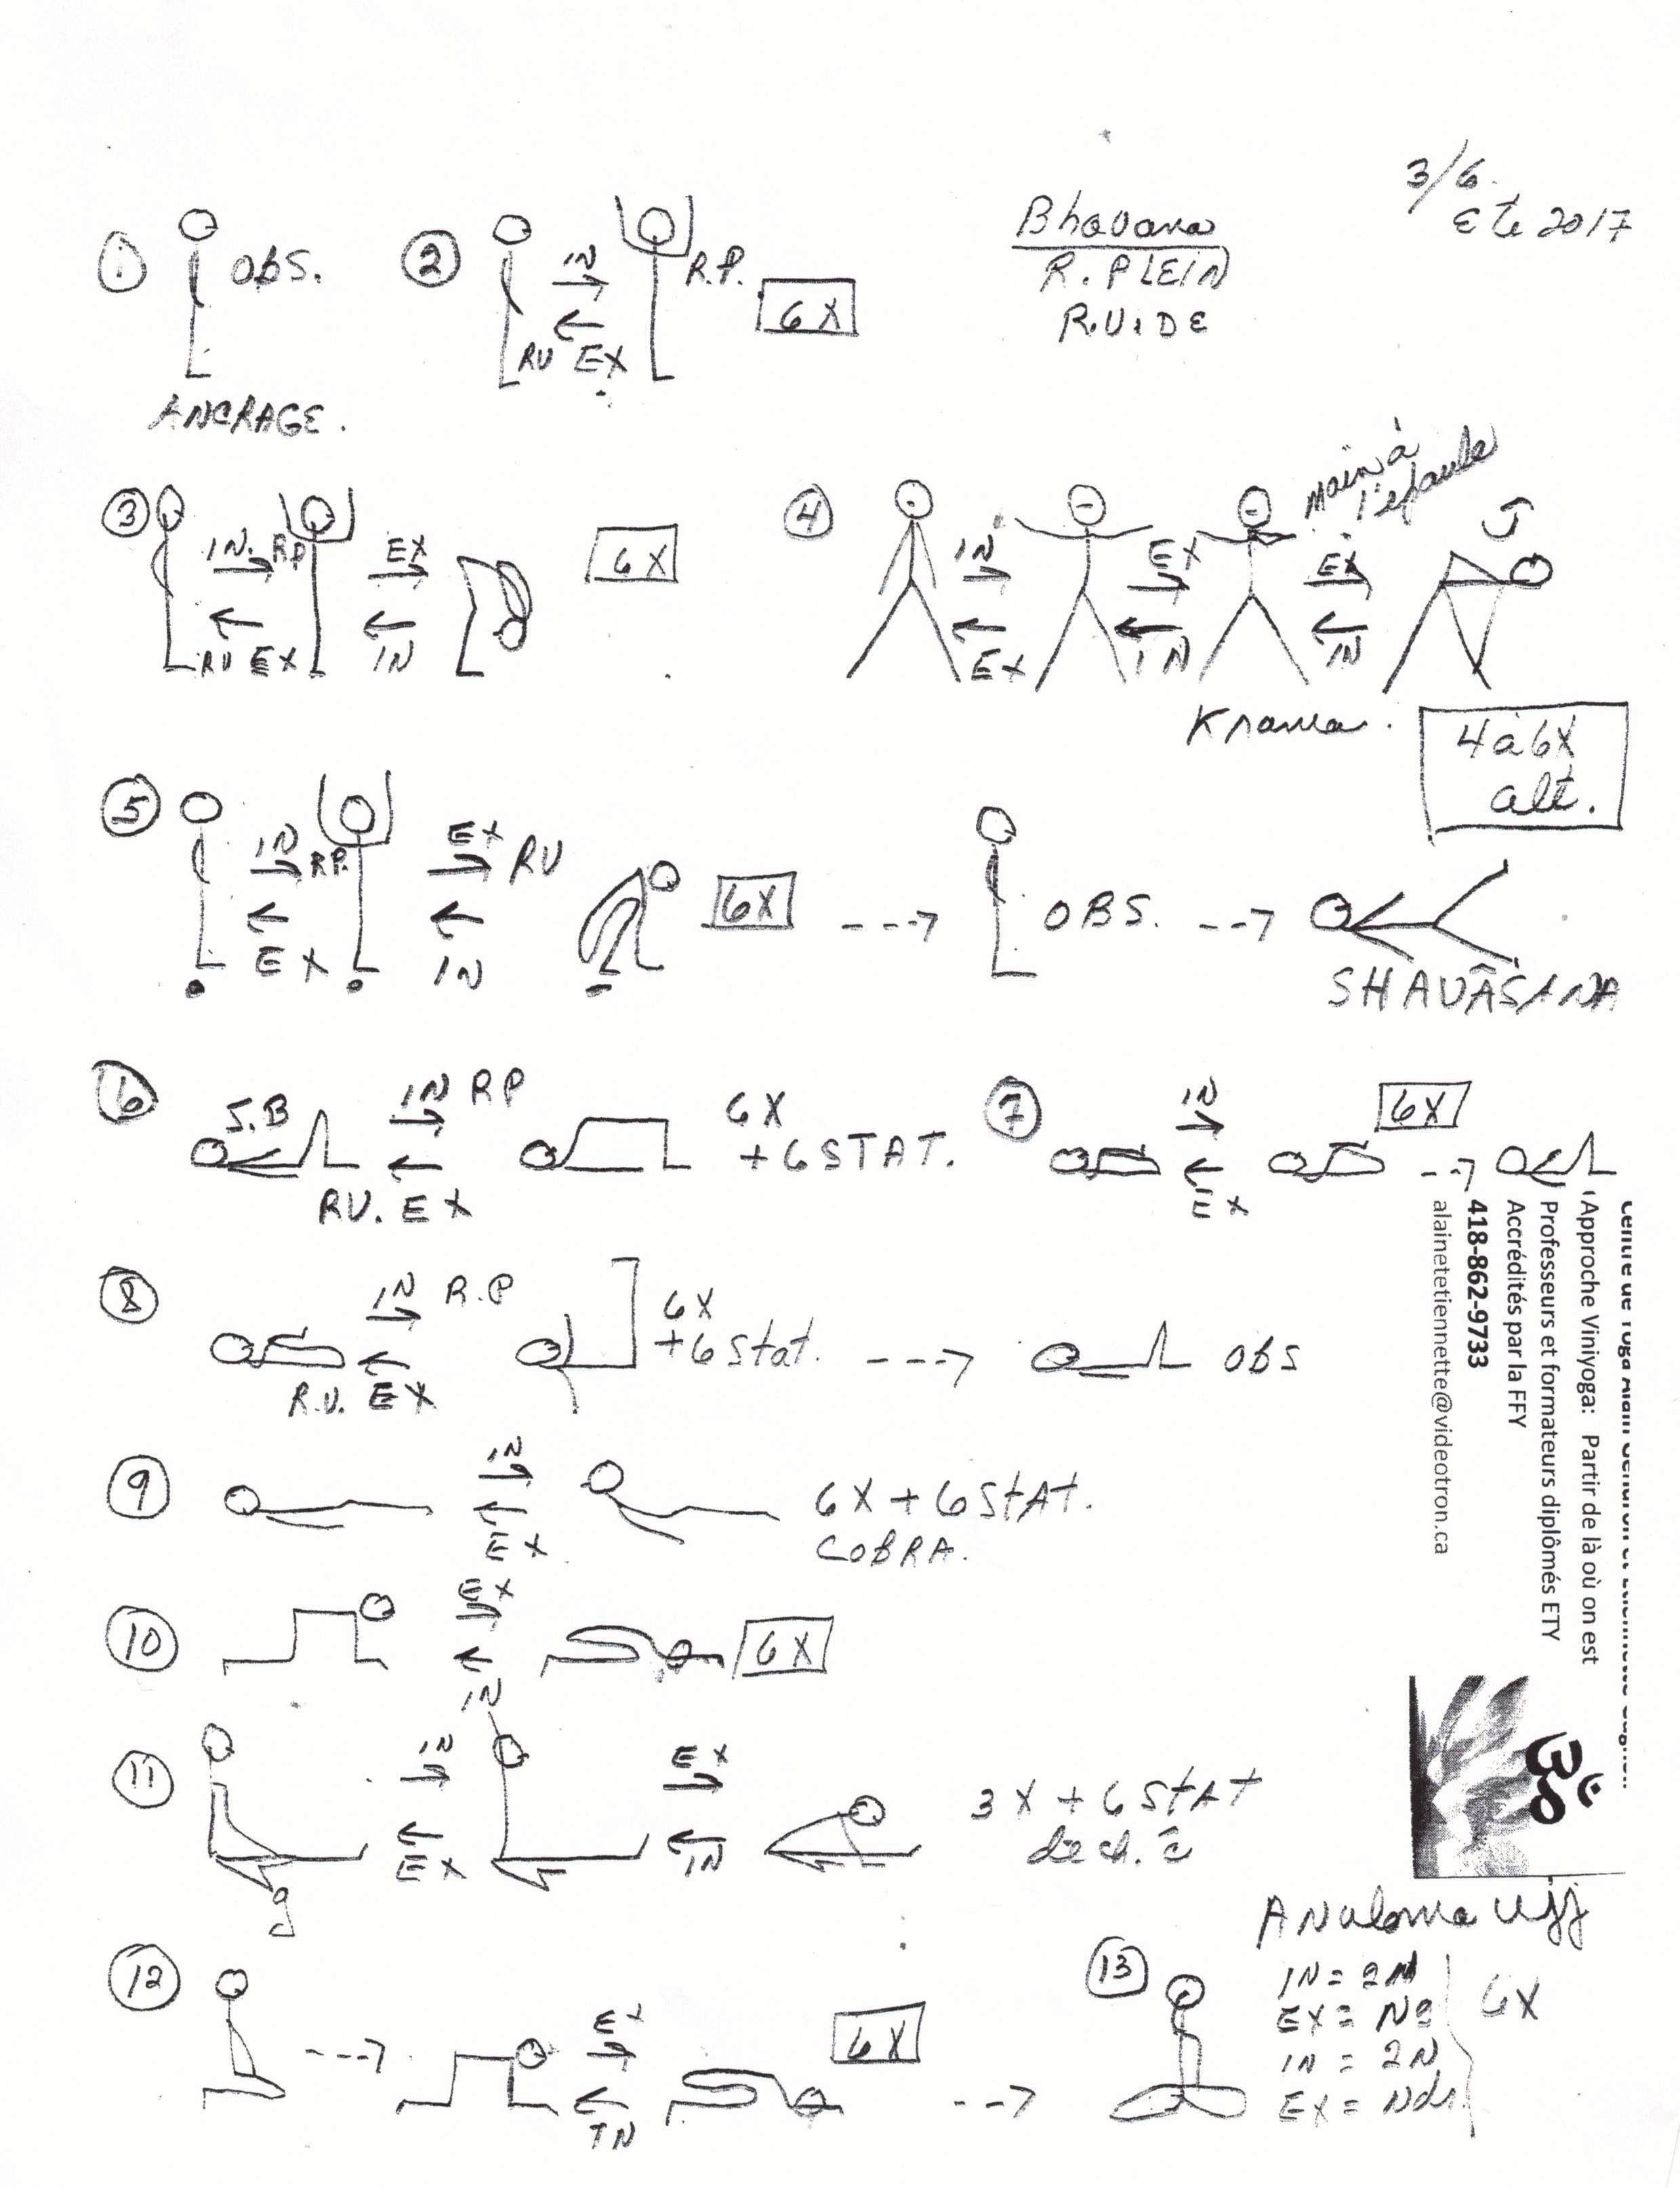 3/6
Eté 2017
Bhavana
R. PLEIN
R.VIDE
1 Obs.
ANCRAGE.
2 IN R.P.
RV EX
6 X
3 IN. RP EX
RV EX IN
6 X
4 IN EX EX
main à
l'épaule
EX IN IN
Krama.
4 à 6X
alt.
5 IN RP. EX RV
EX IN
6X
---> OBS. --->
SHAVÂSANA
6 S.B IN RP
RV. EX
6X
+ 6 STAT.
7 IN
EX
6X
-->
8 IN R.P
R.V. EX
6X
+6 Stat.
---> Obs
9 IN
EX
6X + 6 StAt.
COBRA.
10 EX
IN
6X
11 IN EX
EX IN
g
3X + 6 StAt
de ch. c
12 ---> EX
IN
6X
-->
13
ANuloma Ujj
IN = 2N
EX = Ng
IN = 2N
EX = Nd
6X
Centre de Yoga Alain Gendron et Etiennette Gagnon
(Approche Viniyoga: Partir de là où on est
Professeurs et formateurs diplômés ETY
Accrédités par la FFY
418-862-9733
alainetetiennette@videotron.ca
ॐ